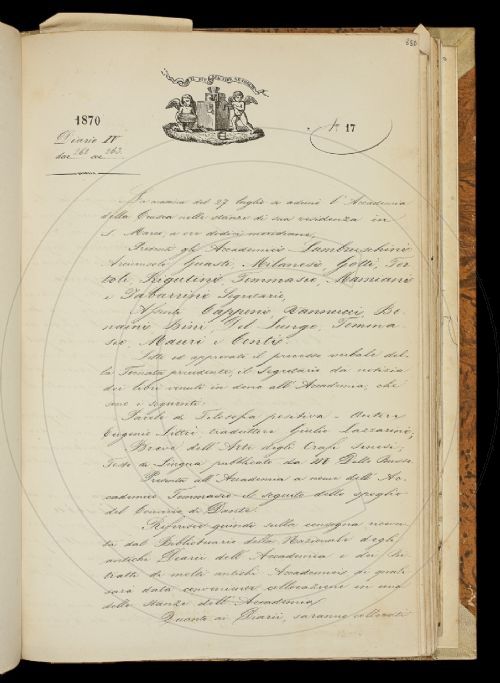 350
IL PIÙ BEL FIOR NE COGLIE
1870
N 17
Diario IV
dai 262 ai 263.
La mattina del 27 luglio si adunò l'Accademia
della Crusca nelle stanze di sua residenza in
S. Marco, a ore dodici meridiane.
Presenti gli Accademici - Lambruschini
Arciconsolo, Guasti, Milanesi, Gotti, Tor-
toli, Rigutini, Tommaseo, Mamiani
e Tabarrini Segretario.
Assenti Capponi, Vannucci, Bo-
naini, Bini, Del Lungo, Tomma-
seo, Mauri e Conti.
Letto ed approvato il processo verbale del-
la Tornata precedente, il Segretario dà notizia
dei libri venuti in dono all'Accademia, che
sono i seguenti:
Parole di Filosofia positiva - Autore
Eugenio Littré traduttore Giulio Lazzarini;
Breve dell'Arte degli Orafi senesi;
Testo di Lingua pubblicato da
Presenta all'Accademia a nome dell'Ac-
cademico Tommaseo il seguito dello spoglio
del Convivio di Dante.
Riferisce quindi sulla consegna ricevu-
ta dal Bibliotecario della Nazionale degli
antichi Diarii dell'Accademia e dei Ri-
tratti di molti antichi Accademici ai quali
sarà data conveniente collocazione in una
delle stanze dell'Accademia.
Quanto ai Diarii, saranno collocati